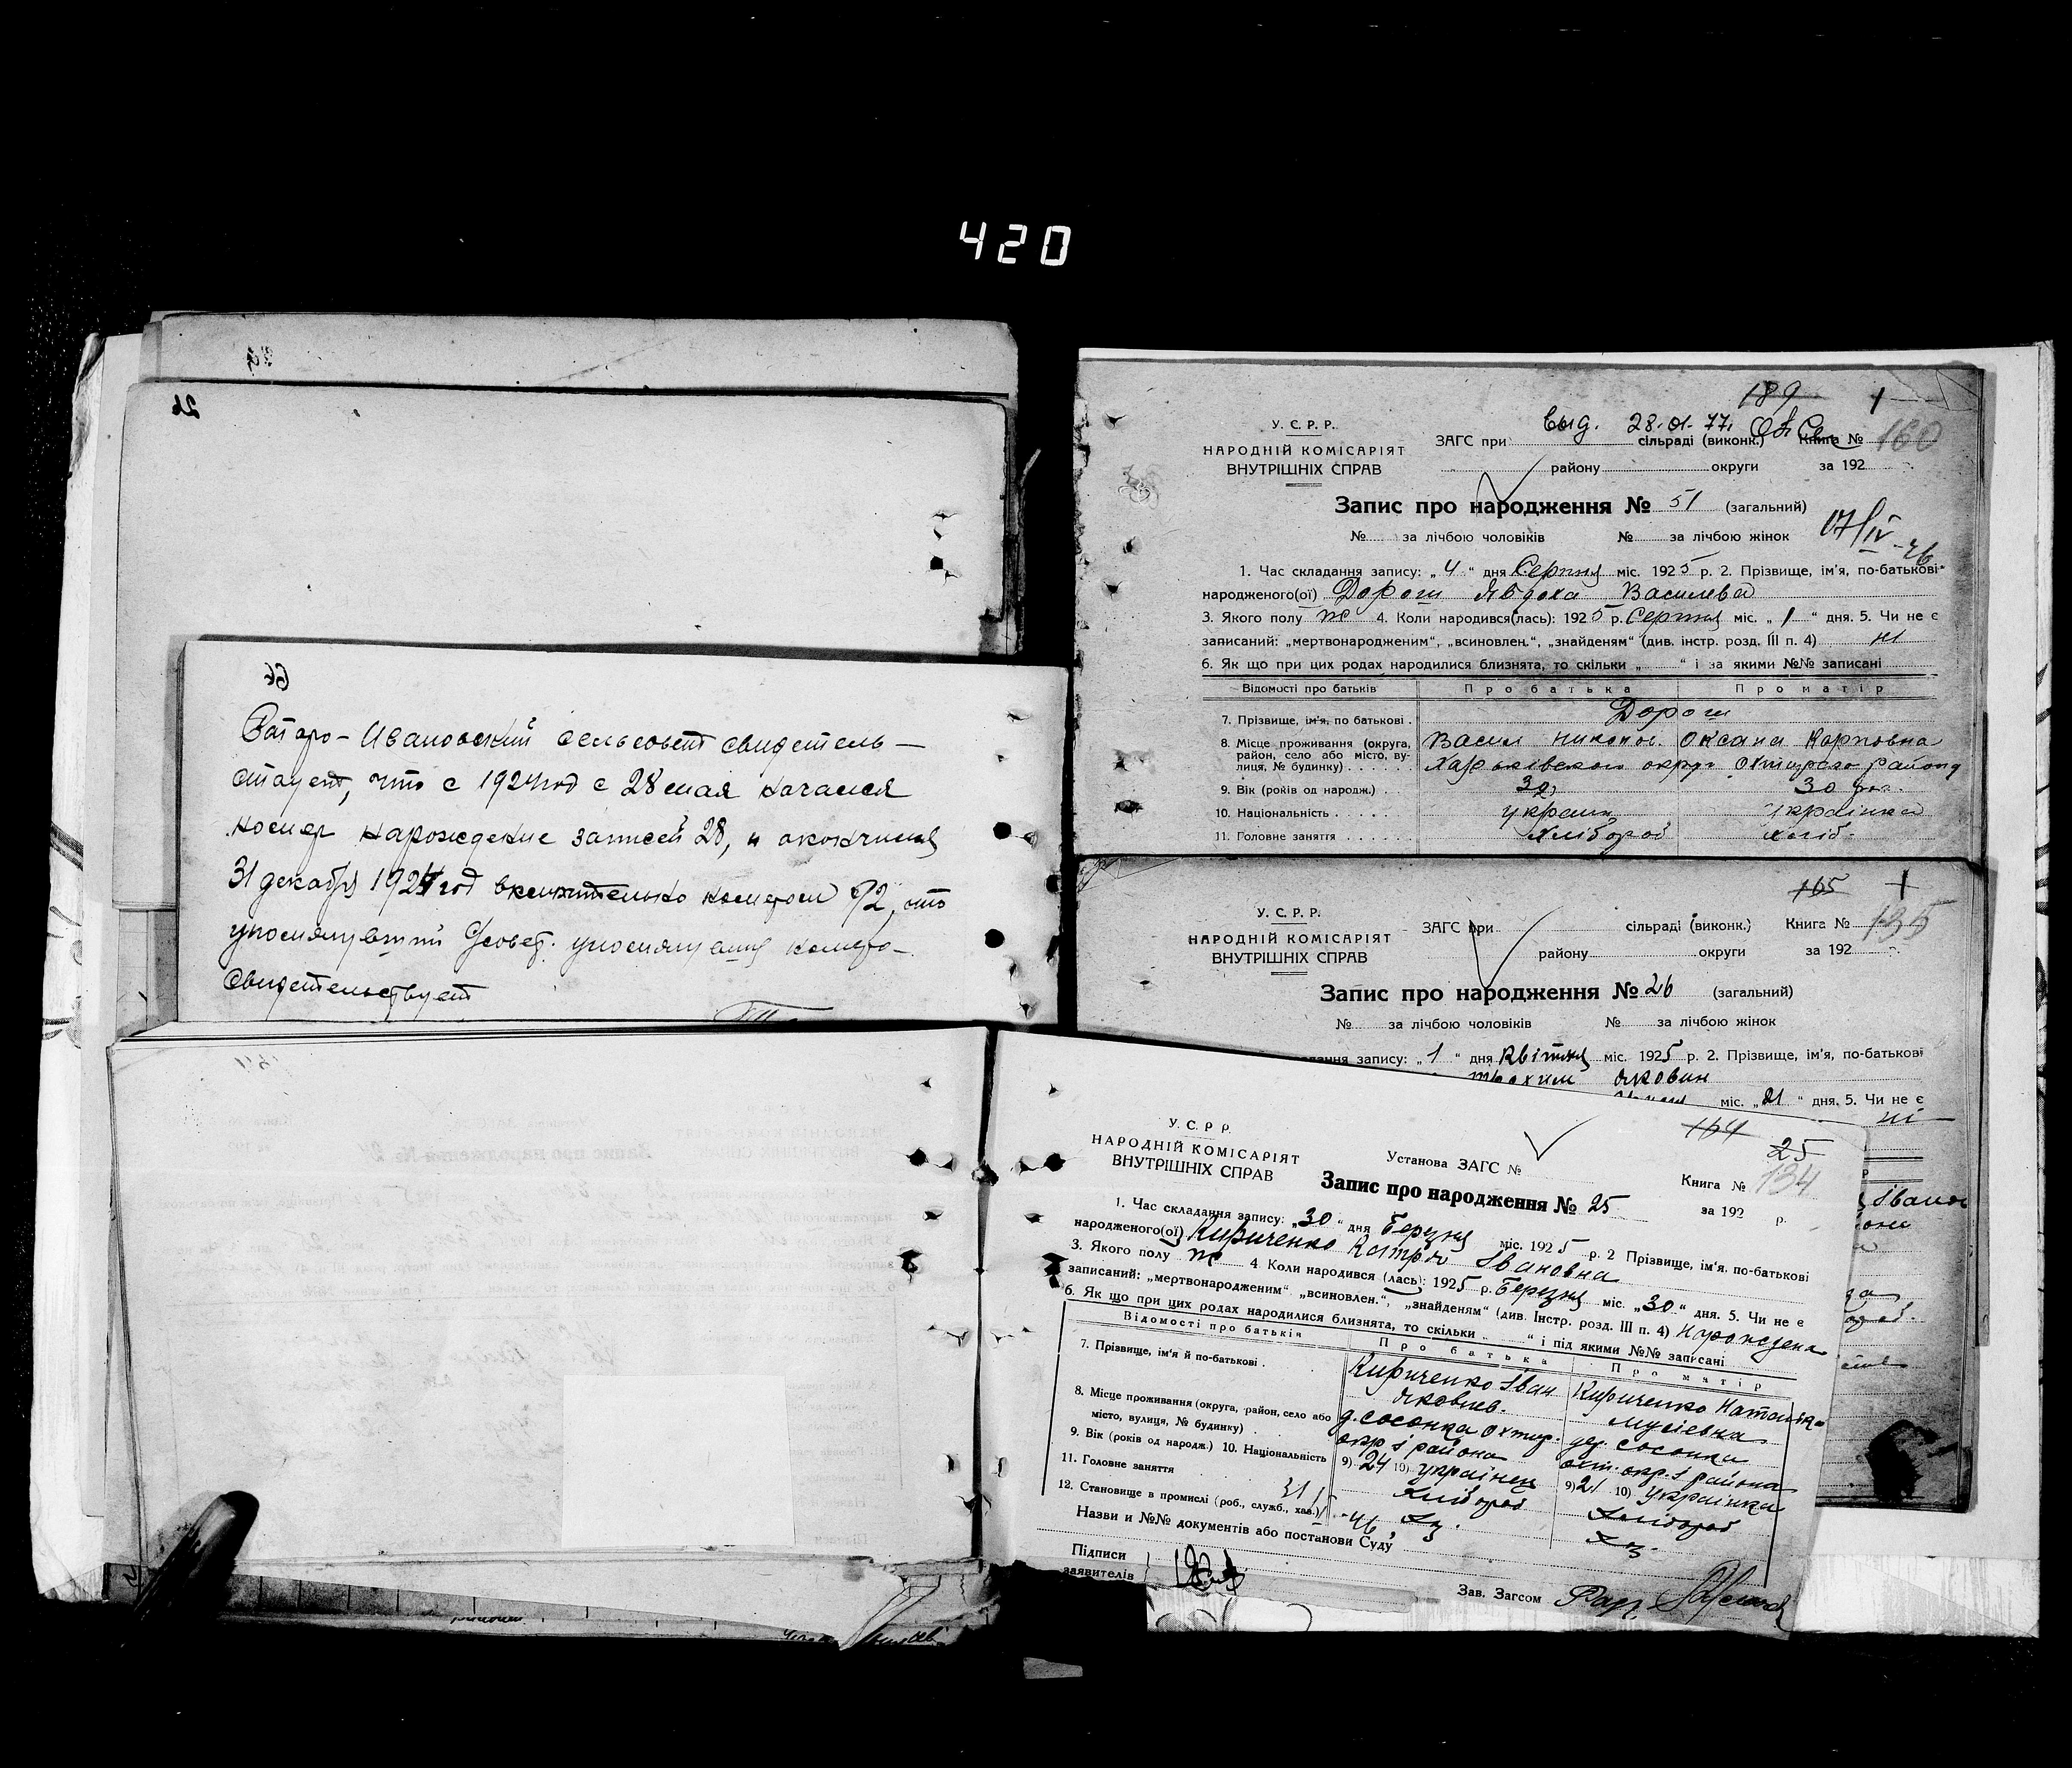 420
26
66
Старо-Ивановский сельсовет свидетель-
ствует, что с 1924 год с 28 мая начался
номер нарождение записей 28, и окончился
31 декабря 1924 год включительно номером 92, что
упомянувший с/совет. упомянувшиу номера-
свидетельствует
189
Выд. 28.01.77.
У. С. Р. Р.
НАРОДНІЙ КОМІСАРІЯТ
ВНУТРІШНІХ СПРАВ
ЗАГС при сільраді (виконк.) Книга № 160
району округи за 192
Запис про народження № 51 (загальний)
№ за лічбою чоловіків № за лічбою жінок
17/IV-46
1. Час складання запису: „4“ дня Серпня міс. 1925 р. 2. Прізвище, ім'я, по-батькові
народженого(ої) Дорош Явдоха Василева
3. Якого полу ж 4. Коли народився(лась): 1925 р. Серпня міс. „1“ дня. 5. Чи не є
записаний: „мертвонародженим“, „всиновлен.“, „знайденям“ (див. інстр. розд. III п. 4) ні
6. Як що при цих родах народилися близнята, то скільки „ “ і за якими №№ записані
Відомості про батьків Про батька Про матір
7. Прізвище, ім'я, по батькові . Дорош
8. Місце проживання (округа, район, село або місто, вулиця, № будинку) Васил Оксана Карповна
Харьківского округ Охтирско району
9. Вік (років од народж.) . 30 30
10. Національність . . . . . україн українка
11. Головне заняття . . . . . хлібороб хліб.
165
У. С. Р. Р.
НАРОДНІЙ КОМІСАРІЯТ
ВНУТРІШНІХ СПРАВ
ЗАГС при сільраді (виконк.) Книга № 135
району округи за 192
Запис про народження № 26 (загальний)
№ за лічбою чоловіків № за лічбою жінок
запису: „1“ дня Квітня міс. 1925 р. 2. Прізвище, ім'я, по-батькові
Трохим Яковин
міс. „21“ дня. 5. Чи не є
ні
164
25
У. С. Р. Р.
НАРОДНІЙ КОМІСАРІЯТ
ВНУТРІШНІХ СПРАВ
Установа ЗАГС №
Книга № 134
Запис про народження № 25
за 192 р.
1. Час складання запису: „30“ дня Березня міс. 1925 р. 2 Прізвище, ім'я, по-батькові
народженого(ої) Кириченко Івановна
3. Якого полу ж 4. Коли народився (лась): 1925 р. Березня міс. „30“ дня. 5. Чи не є
записаний: „мертвонародженим“ „всиновлен.“, „знайденям“ (див. Інстр. розд. III п. 4) Нарождена
6. Як що при цих родах народилися близнята, то скільки „ “ і під якими №№ записані
Відомості про батьків Про батька Про матір
7. Прізвище, ім'я й по-батькові . Кириченко Іван Яковлев. Кириченко Наталка Мусіевна
8. Місце проживання (округа, район, село або місто, вулиця, № будинку) . д. Сосонка Охтир. окр. 1 района дер. Сосонка охт. окр. 1 района
9. Вік (років од народж.) 10. Національність 9) 24 10) українец 9) 21 10) українка
11. Головне заняття хлібороб хлібороб
12. Становище в промислі (роб., служб., хаз.) хз. хз.
Назви и №№ документів або постанови Суду
Підписи
заявителів
Зав. Загсом